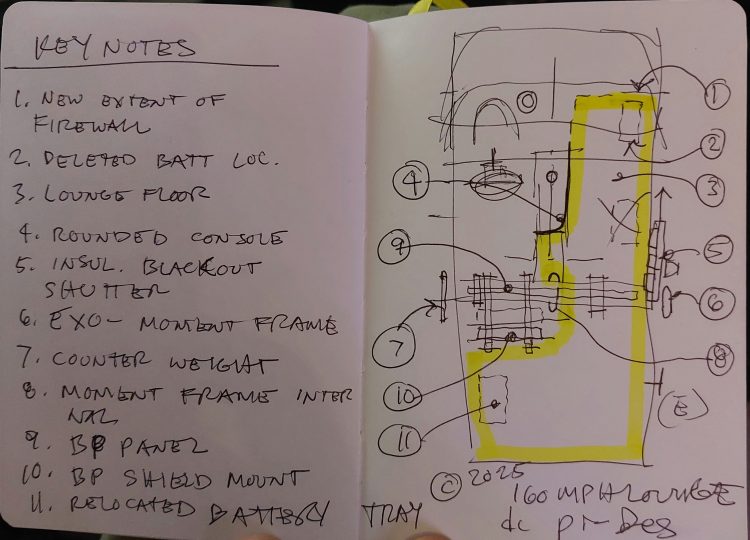 KEY NOTES
1. NEW EXTENT OF
FIREWALL
2. DELETED BATT LOC.
3. LOUNGE FLOOR
4. ROUNDED CONSOLE
5. INSUL. BLACKOUT
SHUTTER
6. EXO- MOMENT FRAME
7. COUNTER WEIGHT
8. MOMENT FRAME INTER
NAL
9. BP PANEL
10. BP SHIELD MOUNT
11. RELOCATED BATTERY TRAY
1
2
4
3
9
5
6
7
8
10
(E)
11
© 2025
160 MPH LOUNGE